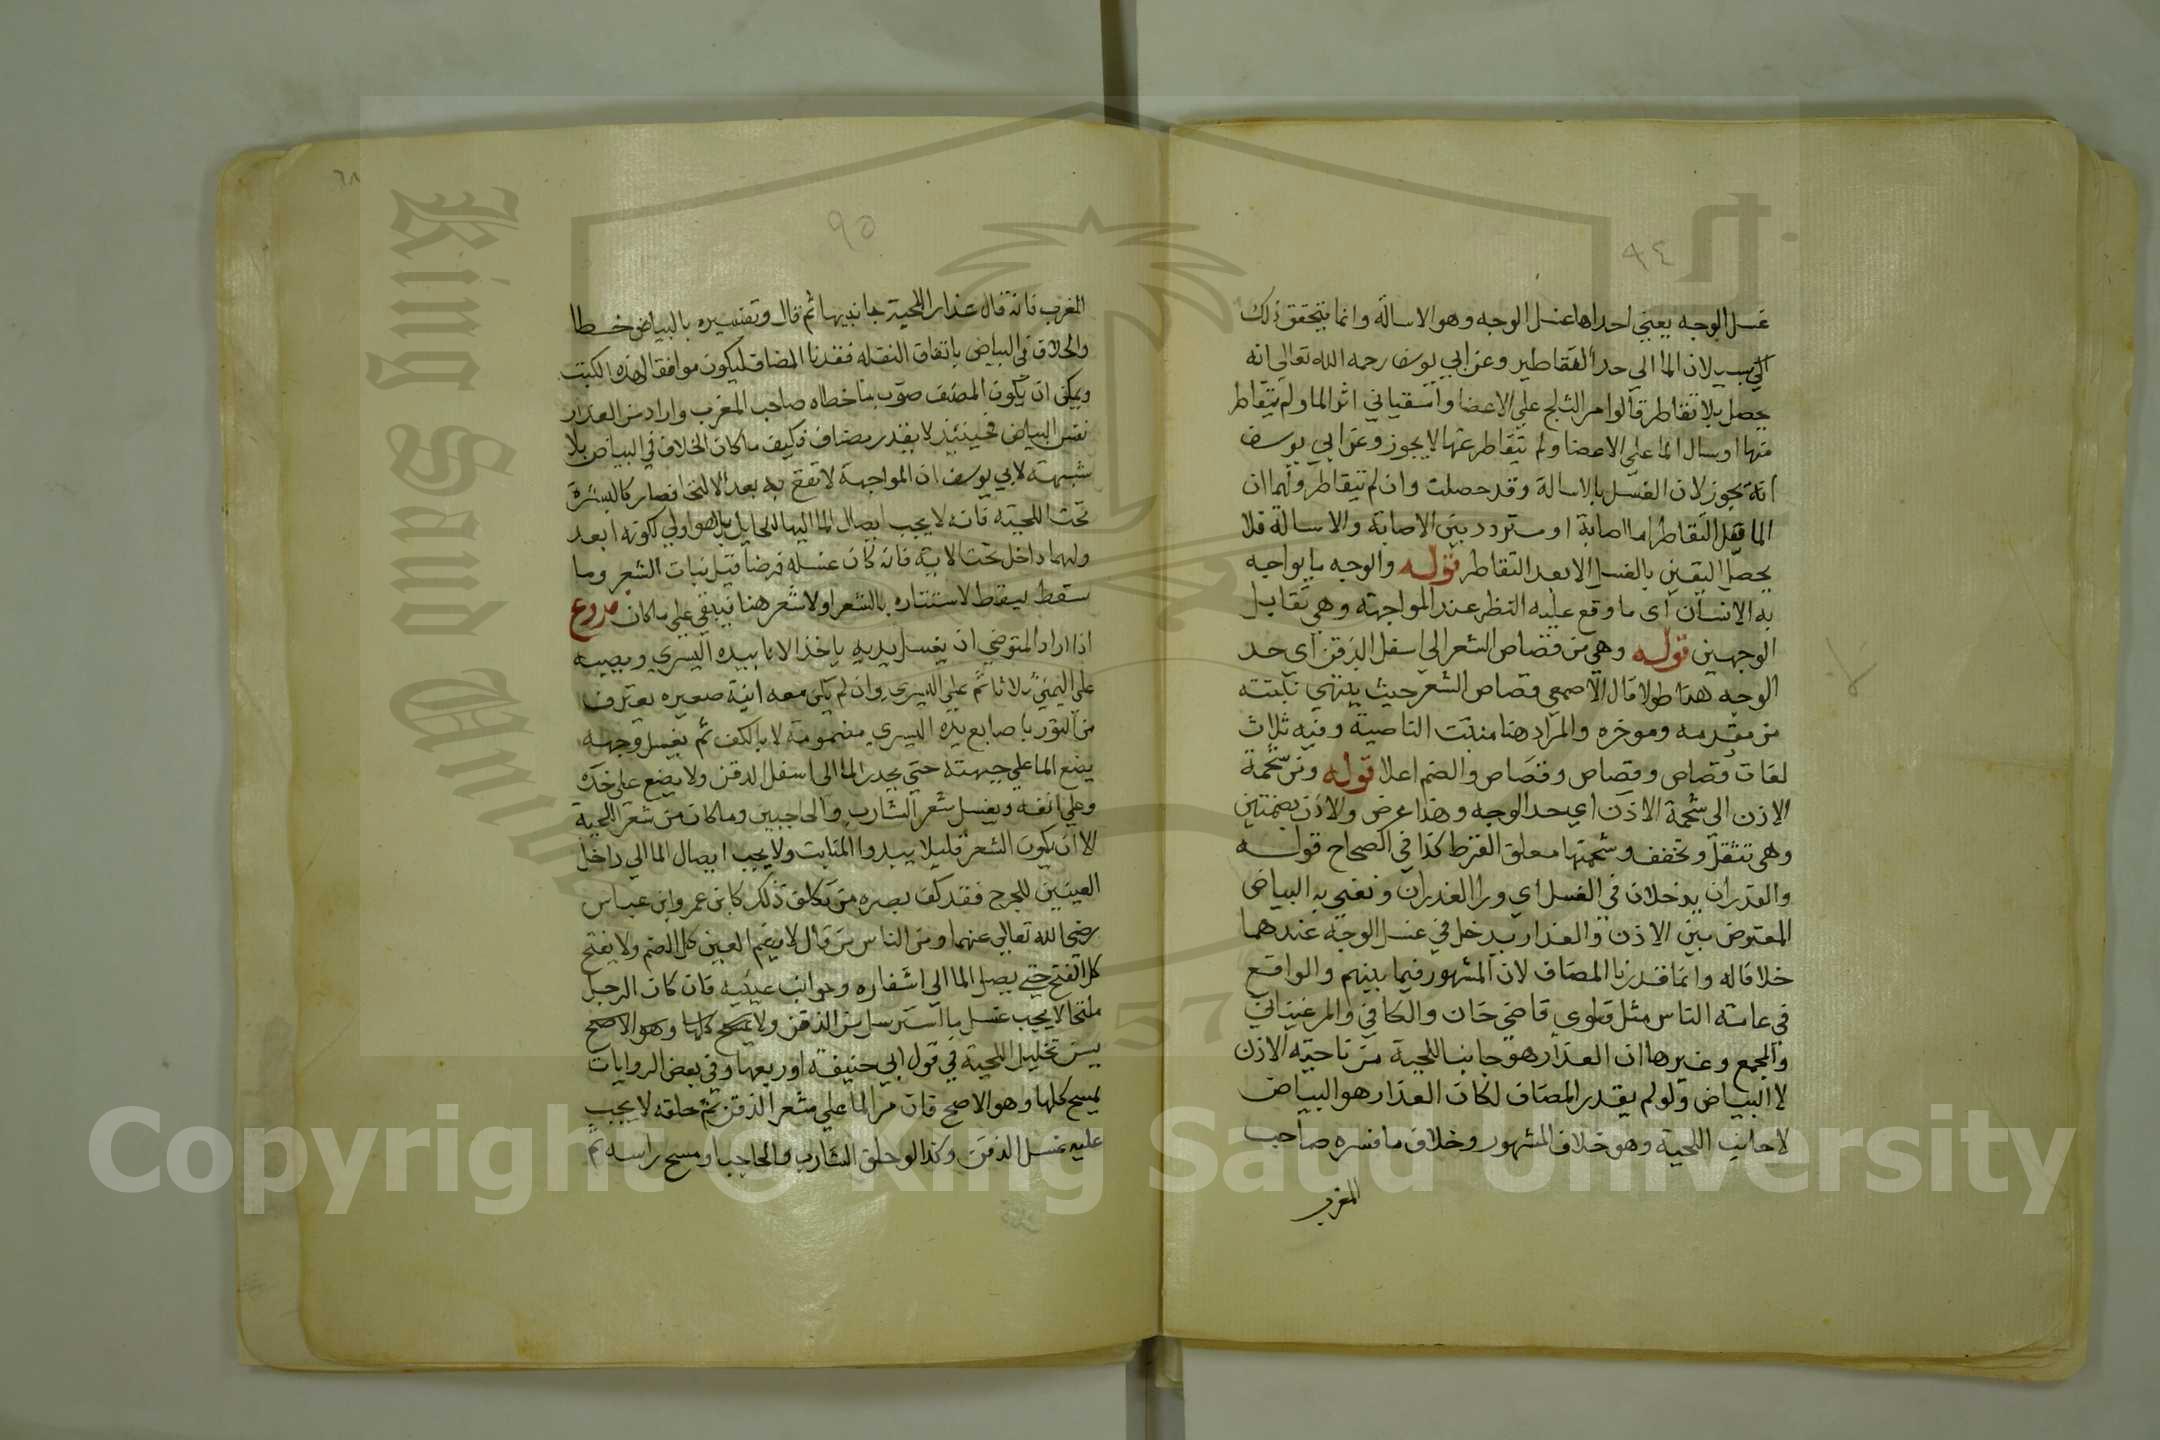 ٩٤
غسل الوجه يعني احداها غسل الوجه وهو الاسالة وانما يتحقق ذلك
لان الما الي حد القاطير وعن ابي يوسف رحمه الله تعالي انه
يحصل بلا تقاطر قالوا مر الثلج علي الاعضا واسقياني اثر الما ولم يتقاطر
منها اوسال الما علي الاعضا ولم يتقاطر عنها لا يجوز وعن ابي يوسف
انه يجوز لان الغسل بالاسالة وقد حصلت وان لم تتقاطر ولهما ان
الما قبل التقاطر اما اصابة او متردد بين الاصابة والاسالة فلا
يحصل اليقين بالغسل الا بعد التقاطر قوله والوجه ما يواجه
به الانسان اي ما وقع عليه النظر عند المواجهة وهي تقابل
الوجهين قوله وهي من قصاص الشعر الي اسفل الذقن اي حد
الوجه هذا طولا قال الاصمعي قصاص الشعر حيث ينتهي نبتته
من مقدمه وموخره والمراد هنا منبت الناصية وفيه ثلاث
لغات قصاص وقصاص وقصاص والضم اعلا قوله ومن شحمة
الاذن الي شحمة الاذن اي حد الوجه وهذا عرض والاذن بضمتين
وهي تثقل وتخفف وشحمتها معلق القرط كذا في الصحاح قوله
والعذران يدخلان في الغسل اي ورا العذران ونعني به البياض
المعترض بين الاذن والعذار يدخل في غسل الوجه عندهما
خلافا له وانما قدرنا المضاف لان المشهور فيما بينهم والواقع
في عامته الناس مثل فتاوي قاضي خان والكافي والمرغيناني
والمجمع وغيرها ان العذار هو جانبا اللحية من ناحية الاذن
لا البياض ولو لم يقدر المضاف لكان العذار هو البياض
لا جانب اللحية وهو خلاف المشهور وخلاف ما فسره صاحب
المغرب
٦٨
٩٥
المغرب فانه قال عذار اللحية جانبيها ثم قال وتفسيره بالبياض خطا
والخلاف في البياض باتفاق النقلة فقدرنا المضاف ليكون موافقا لهذه الكتب
ويمكن ان يكون المصنف صوب ما خطاه صاحب المغرب واراد من العذار
نفس البياض فحينئذ لا يقدر مضاف فكيف ما كان الخلاف في البياض بلا
شبهة لابي يوسف ان المواجهة لا تقع به بعد الالتحا فصار كالبشرة
تحت اللحية فانه لا يجب ايصال الما اليها للحايل بل هو اولي لكونه ابعد
ولهما داخل تحت الاية فانه كان غسله فرضا قبل نبات الشعر وما
سقط سقط لاستتاره بالشعر ولا شعر هنا فيبقي علي ما كان فروع
اذا اراد المتوضي ان يغسل يديه ياخذ الانا بيده اليسري ويصبه
علي اليمني ثلاثا ثم علي اليسري وان لم يكن معه انية صغيره يغترف
من التور باصابع يده اليسري مضمومة لا بالكف ثم يغسل وجهه
يضع الما علي جبهته حتي يحدر الما الي اسفل الدقن ولا يضع علي خده
وعلي انفه ويغسل شعر الشارب والحاجبين وما كان من شعر اللحية
الا ان يكون الشعر قليلا يبدوا المنابت ولا يجب ايصال الما الي داخل
العينين للحرج فقد كف بصره من تكلف ذلك كابن عمر وابن عباس
رضي الله تعالي عنهما ومن الناس من قال لا يضم العين كل الضم ولا يفتح
كل الفتح حتي يصل الما الي اشفاره وجوانب عينيه فان كان الرجل
ملتحا لا يجب غسل ما استرسل من الذقن ولا يمسح كلها وهو الاصح
يسن تخليل اللحية في قول ابي حنيفة او ربعها وفي بعض الروايات
يمسح كلها وهو الاصح فان مر الما علي شعر الذقن ثم حلقه لا يجب
عليه غسل الدقن وكذا لو حلق الشارب والحاجب او مسح راسه ثم
King Saud University
Copyright © King Saud University